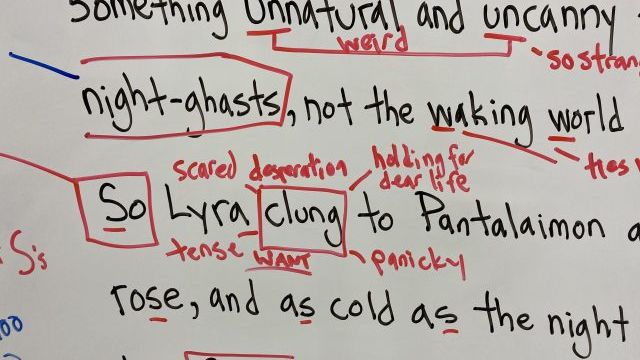 Something Unnatural and uncanny
weird
so stran
night-ghasts, not the waking world
scared desperation holding for dear life
So Lyra clung to Pantalaimon a
tense WANT panicky
S's
rose, and as cold as the night